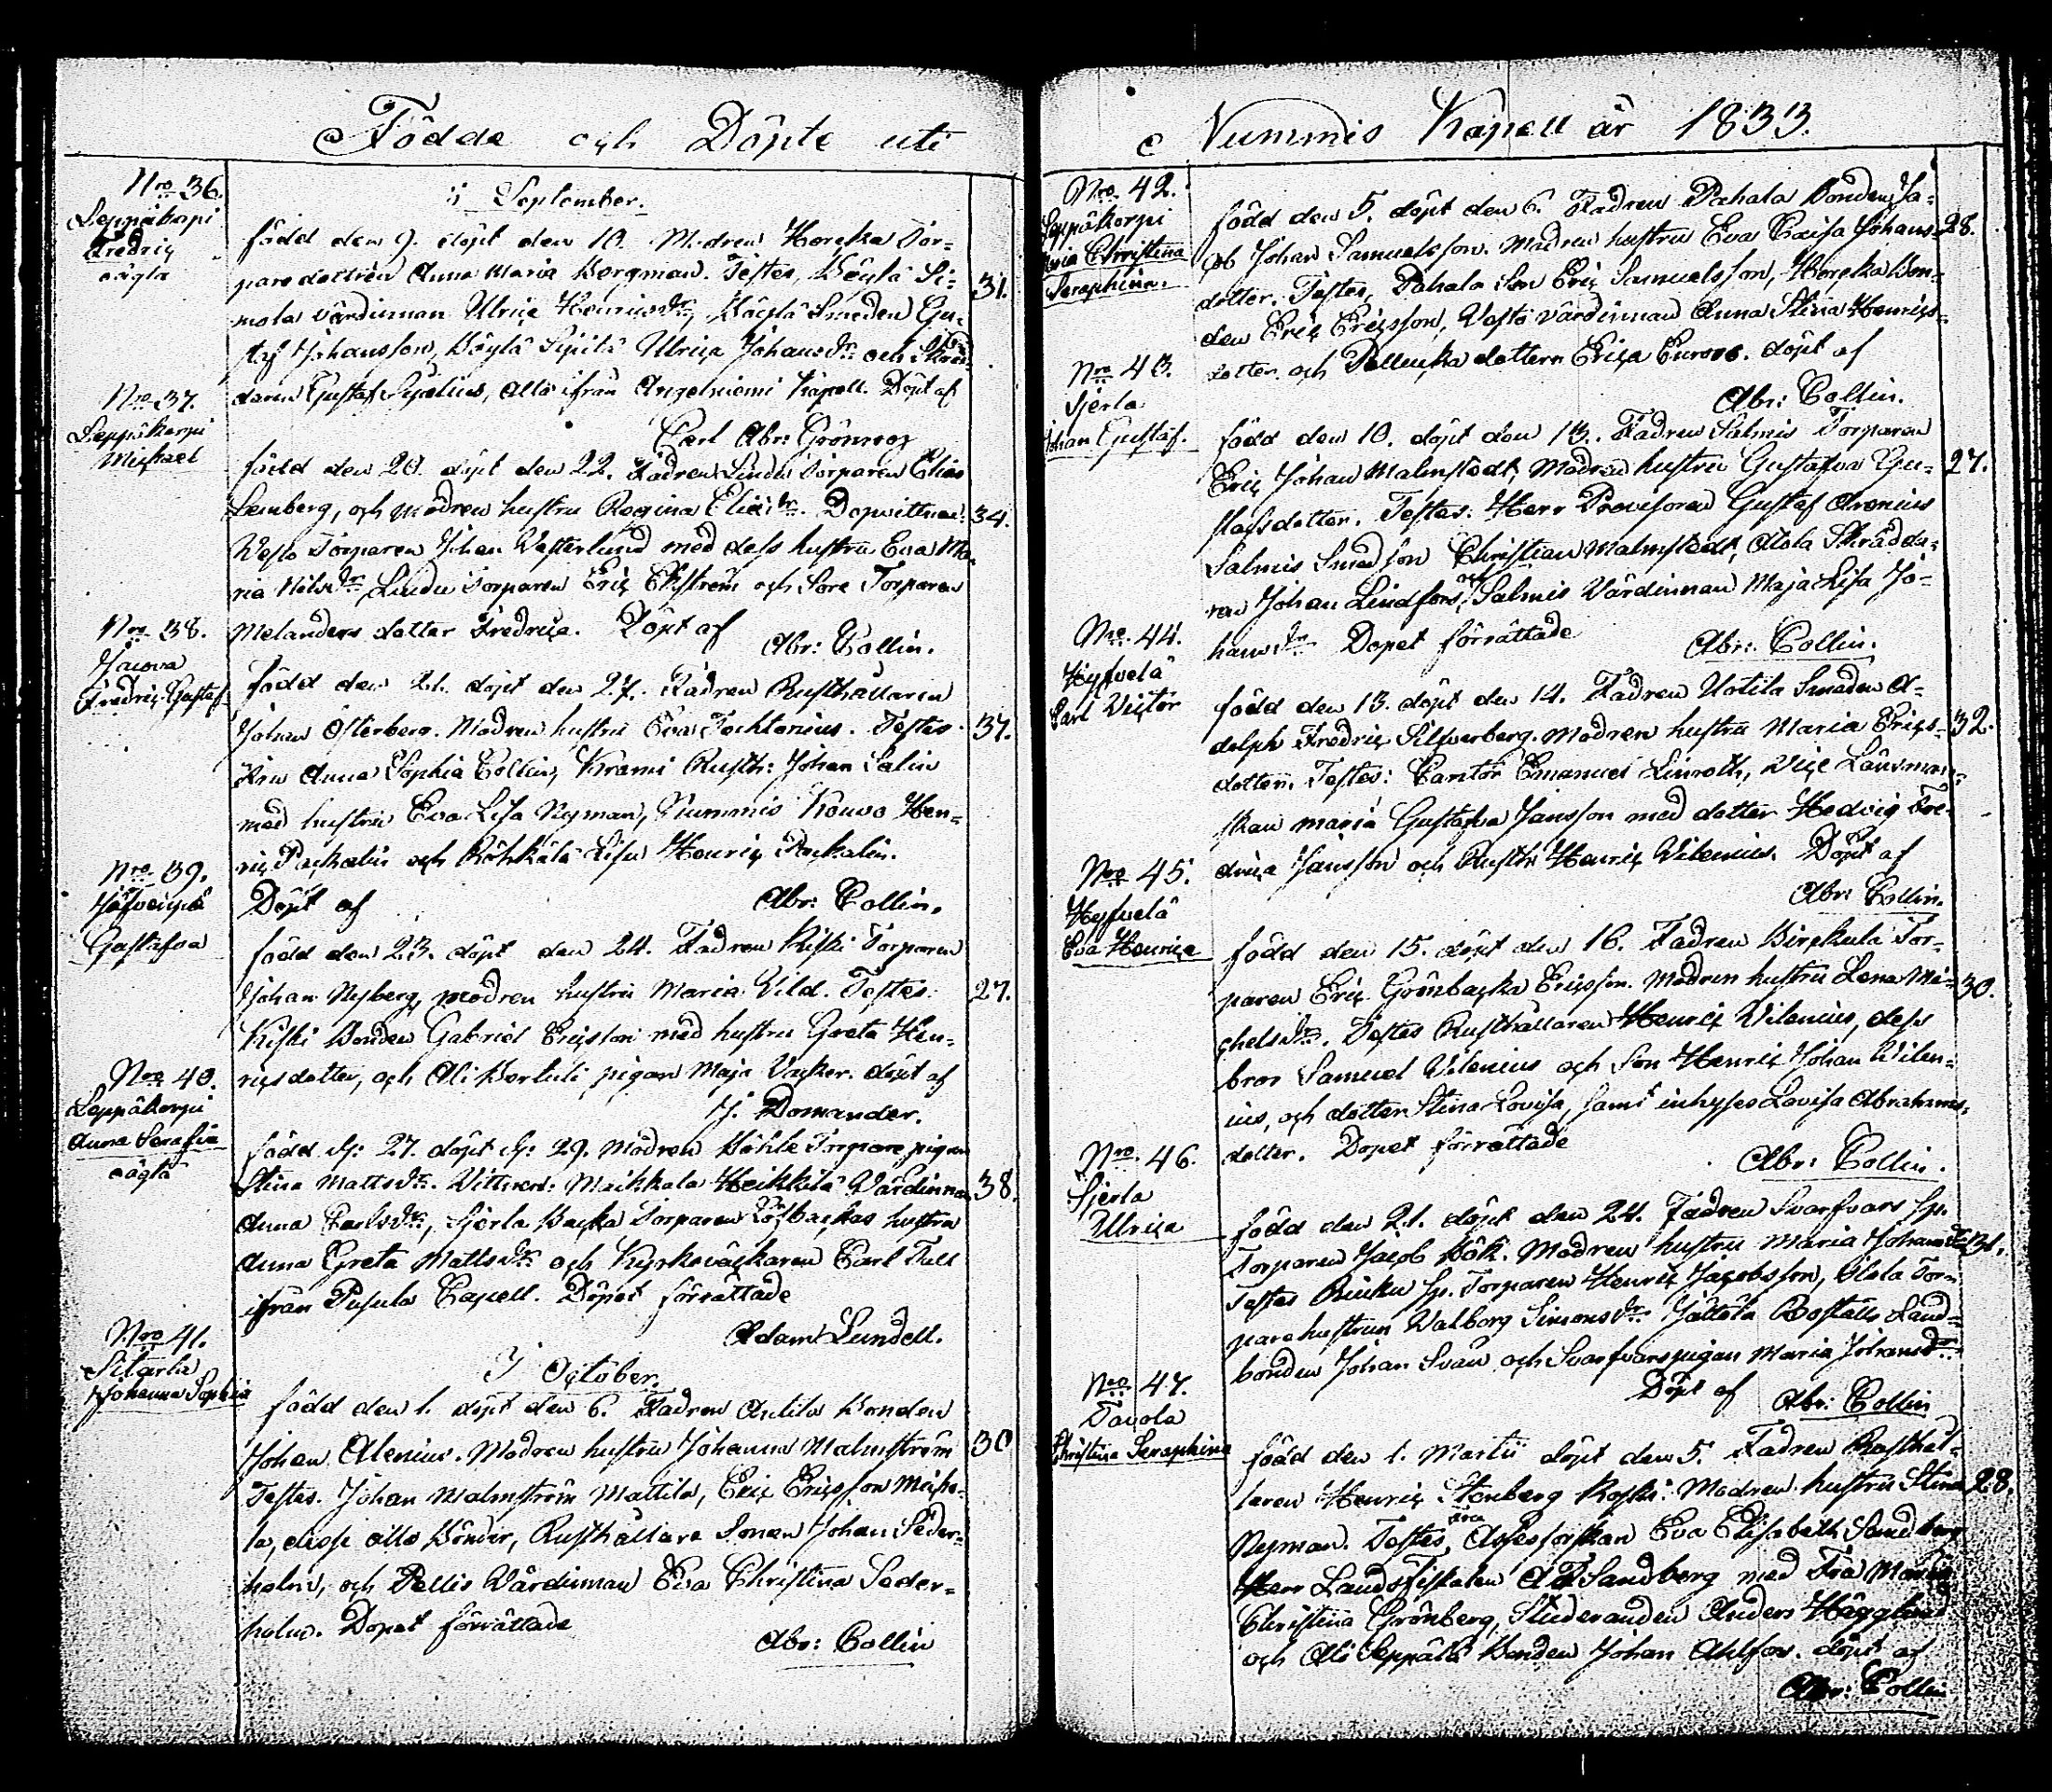 Födde och Döpte uti
i September.
Nro 36.
Leppäkorpi
Fredric
oägta
född den 9. döpt den 10. Modren Horska Tor-
pare dottren Anna Maria Bergman. Testes, Si-
mola värdinnan Ulrica Henricsdr, Smeden Gu-
staf Johansson, Ulrica Johansdr och Skräd-
daren Gustaf, alla ifrån Angelniemi Kapell. Döpt af
Carl Abr: Grönroos
31.
Nro 37.
Leppäkorpi
Michael
född den 20. döpt den 22. Fadren Lindu Torparen Elias
Lemberg, och modren hustru Regina Eliædr. Dopvittnen:
Torparen Johan Vesterlund med dess hustru Eva Ma-
ria Nilsdr, Lindu Torparen Eric Ekström och Sore Torparen
Melanders dotter Fredrica. Döpt af
Abr: Collin.
34.
Nro 38.
Jacova
Fredric Gustaf
född den 21. döpt den 27. Fadren Rusthållaren
Johan Österberg. Modren hustru Eva. Testes
Fru Anna Sophia Collin, Krami Rusth: Johan Salin
med hustru Eva Lisa Nyman, Nummis Kouvo Hen-
ric Packalin och Röhkälä Henric Packalin.
Döpt af
Abr: Collin.
37.
Nro 39.
Gustafva
född den 23. döpt den 24. Fadren Kiski Torparen
Johan Nyberg, modren hustru Maria Vild. Testes:
Kiski Bonden Gabriel Ericsson med hustru Greta Hen-
ricsdotter, och pigan Maja Vacker. döpt af
J. Domander.
27.
Nro 40.
Leppäkorpi
Anna Serafia
oägta
född d: 27. döpt d: 29. Modren Torpare pigan
Stina Mattsdr. Vittnen: Maikkala Heikkilä Värdinnan
Anna Carlsdr, Sjerla Backa Torparen Löfbackas hustru
Anna Greta Mattsdr och Kyrkoväckaren Carl
ifrån Pusula Capell. Döpet förrättade
Adam Lundell.
38.
I October.
Nro 41.
Sitarla
Johanna Sophia
född den 1. döpt den 6. Fadren Antila Bonden
Johan Alenius. Modren hustru Johanna Malmström
Testes. Johan Malmström Mattila, Eric Ericsson
la, desse alla Bönder, Rusthållare Sonen Johan Seder-
holm, och Pellis Värdinnan Eva Christina Seder-
holm. Dopet förrättade
Abr: Collin
30
Nummis Kapell år 1833.
Nro 42.
Leppäkorpi
Maria Christina
Seraphina.
född den 5. döpt den 6. Fadren Pahala Bonden Ja-
cob Johan Samuelsson. Modren hustru Eva Caisa Johans-
dotter. Testes, Pahala Son Eric Samuelsson, Horska Bon-
den Eric Ericsson, Vesto värdinnan Anna Stina Henrics-
dotter och dottern Erica. döpt af
Abr: Collin.
28.
Nro 43.
Sjerla
Johan Gustaf.
född den 10. döpt den 13. Fadren Salmis Torparen
Eric Johan Malmstedt, Modren hustru Gustafva Gu-
stafsdotter. Testes: Herr Provisoren Gustaf Arenius
Salmis Smed son Christian Malmstedt, Skrädda-
ren Johan Lindfors, och Salmis Värdinnan Maja Lisa Jo-
hansdr Dopet förrättade
Abr: Collin.
27.
Nro 44.
Hyfvelä
Carl Victor
född den 13. döpt den 14. Fadren Uotila Smeden A-
dolph Fredric Silfverberg. Modren hustru Maria Erics-
dotter. Testes: Cantor Emanuel Linroth, Vice Länsman-
skan Maria Gustafva Jansson med dotter Hedvig Fre-
drica Jansson och Rusth: Henric Vilenius. Döpt af
Abr: Collin.
32.
Nro 45.
Hyfvelä
Eva Henrica
född den 15. döpt den 16. Fadren Tor-
paren Eric Grönbacka Ericsson. Modren hustru Lena Mi-
chelsdr. Testes Rusthållaren Henric Vilenius, dess
bror Samuel Vilenius och Son Henric Johan Vilen-
ius, och dotter Stina Lovisa, samt inhyses Lovisa Abrahams-
dotter. Dopet förrättade
Abr: Collin.
30.
Nro 46.
Sjerla
Ulrica
född den 21. döpt den 24. Fadren Svarfvars Sp.
Torparen Jacob Bök. Modren hustru Maria Johansdr
Testes Sp. Torparen Henric Jacobsson, Tor-
pare hustrun Valborg Simonsdr Boställs Land-
bonden Johan Svan och Svarfvars pigan Maria Johansdr
Döpt af
Abr: Collin
31.
Nro 47.
Tavola
Christina Seraphina
född den 1. Martii döpt den 5. Fadren Rusthål-
laren Henric Stenberg Koski. Modren hustru Stina
Nyman. Testes, Fru Assessorskan Eva Elisabeth Sandberg
Herr Landsfiskalen Sandberg med Fru Maria
Christina Grönberg, Studeranden Anders Hägglund
och Ali Seppälä Bonden Johan Ahlfors. döpt af
Abr: Collin
28.